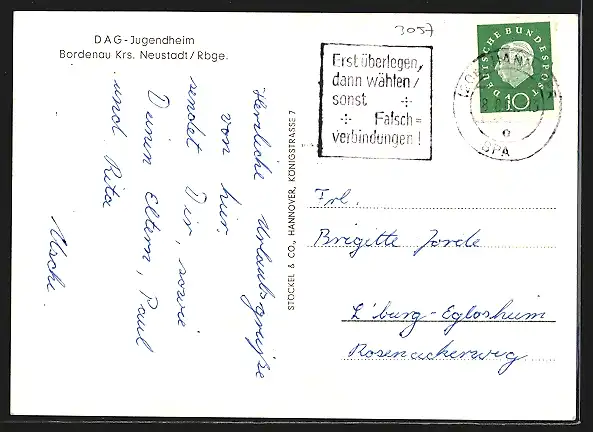 DAG-Jugendheim
Bordenau Krs. Neustadt/Rbge.
Herzliche Urlaubsgrüße
von hier.
sendet Dir, sowie
Deinen Eltern, Paul
und Rita
Uschi.
STÖCKEL & CO., HANNOVER, KÖNIGSTRASSE 7
3057
Erst überlegen,
dann wählen/
sonst
Falsch=
verbindungen!
DEUTSCHE BUNDESPOST
10
Frl.
Brigitte Jorde
L'burg-Eglosheim
Rosenackerweg